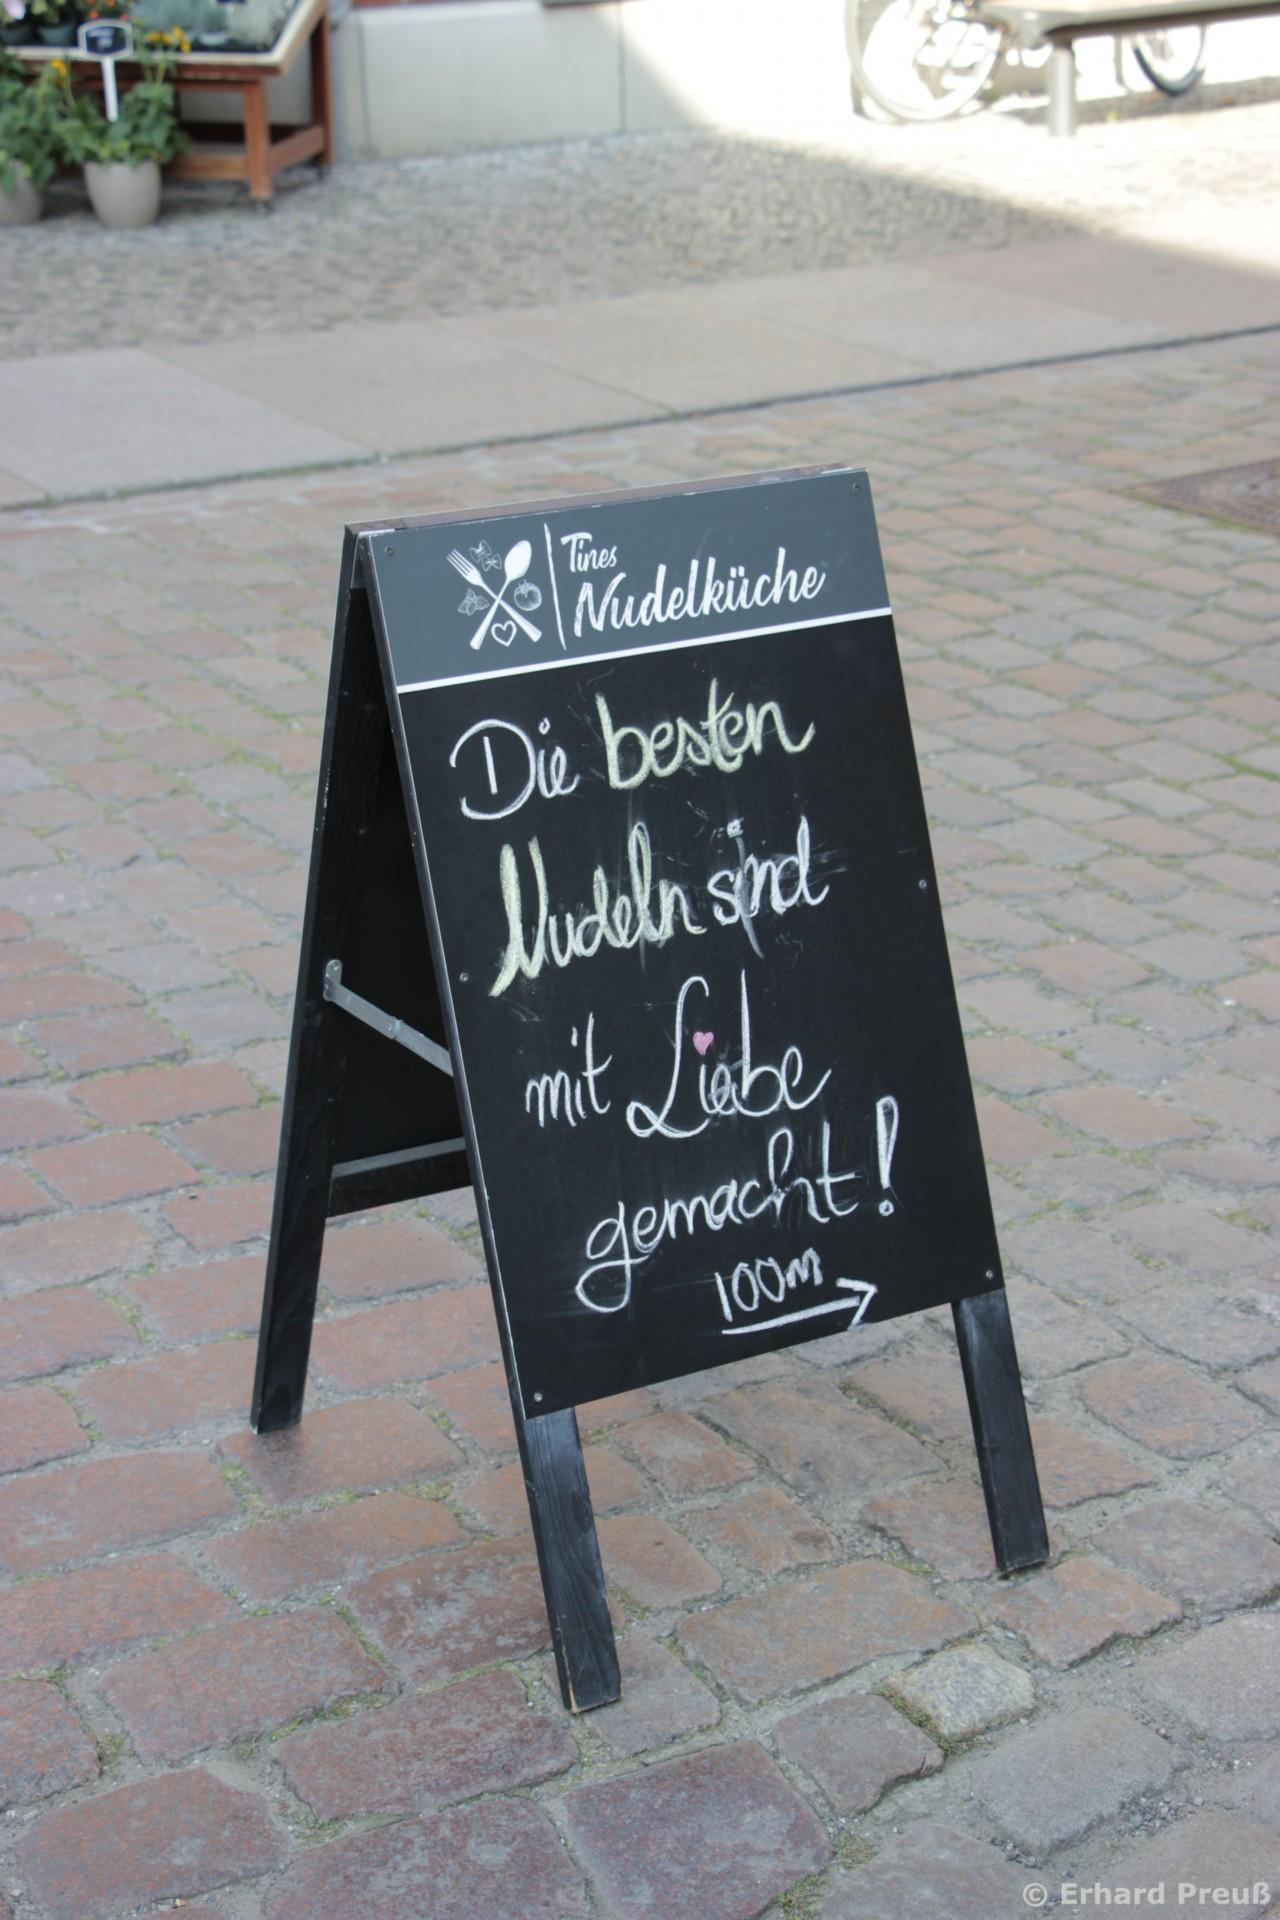 Tines
Nudelküche
Die besten
Nudeln sind
mit Liebe
gemacht!
100m
© Erhard Preuß